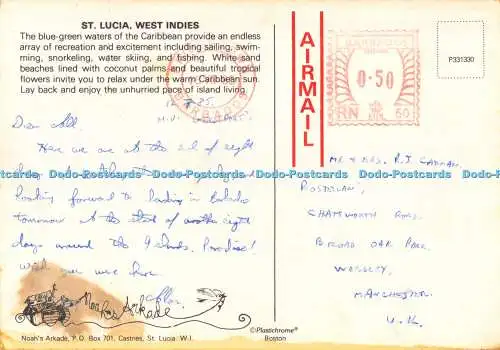 ST. LUCIA, WEST INDIES
The blue-green waters of the Caribbean provide an endless
array of recreation and excitement including sailing, swim-
ming, snorkeling, water skiing, and fishing. White sand
beaches lined with coconut palms and beautiful tropical
flowers invite you to relax under the warm Caribbean sun.
Lay back and enjoy the unhurried pace of island living.
Dear All.
Here we are at the end of eight
days
looking forward to landing in
tomorrow at the start of another eight
days around the Islands. Paradise!
wish you were here
Noah's Arkade
Noah's Arkade, P.O. Box 701, Castries, St. Lucia W.I.
©Plastichrome®
Boston
AIRMAIL
BARBADOS
BARBADOS
0·50
RN
P331330
MR & MRS. R.J
CHATSWORTH ROAD.
BROAD OAK PARK
WORSLEY,
MANCHESTER.
U.K.
Dodo-Postcards Dodo-Postcards Dodo-Postcards Dodo-Postcards Dodo-Postcards
Dodo-Postcards Dodo-Postcards Dodo-Postcards Dodo-Postcards